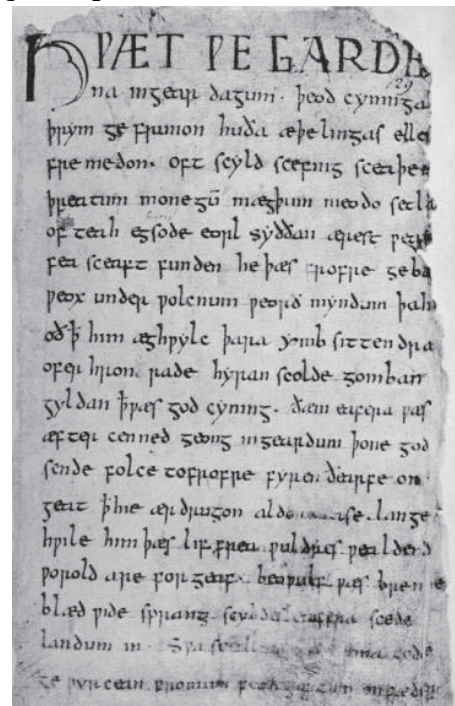 HǷÆT ǷE GARDE
129
na ingear dagum · þeod cyninga
þrym ge frunon huða æþelingas elle
fre medon. oft scyld scefing sceaþe
þreatum monegū mægþum meodo setla
of teah egsode eorl syððan ærest
fea sceaft funden he þæs frofre geba
ƿeox under ƿolcnum ƿeorð myndum þah
oð ꝥ him æghƿylc þara ymb sittendra
ofer hron rade hyran scolde gomban
gyldan ꝥ ƿæs god cyning. ðæm eafera ƿæs
æfter cenned geong ingeardum þone god
sende folce tofrofre fyren ðearfe on
geat ꝥ hie ær drugon lange
hƿile him þæs lif frea ƿuldres ƿealdend
ƿorold are for geaf. beoƿulf ƿæs breme
blæd ƿide sprang scyldes eafera scede
landum in. Sƿa gode
ge ƿyrcean fromum